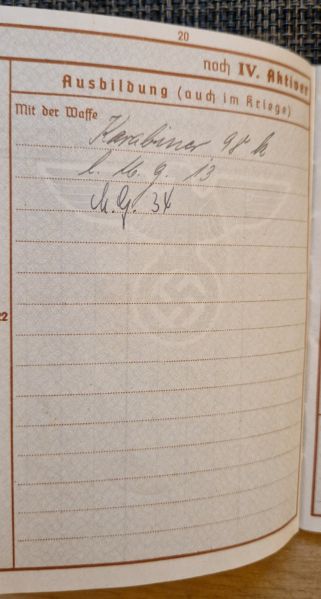 20
noch IV. Aktiver
Ausbildung (auch im Kriege)
Mit der Waffe
Karabiner 98 k
l. M. G. 13
M. G. 34
22